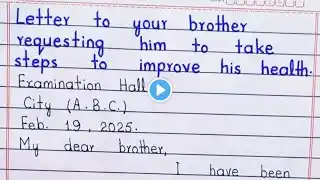 Letter to your brother
requesting him to take
steps to improve his health.
Examination Hall
City (A.B.C.)
Feb. 19, 2025.
My dear brother,
I have been